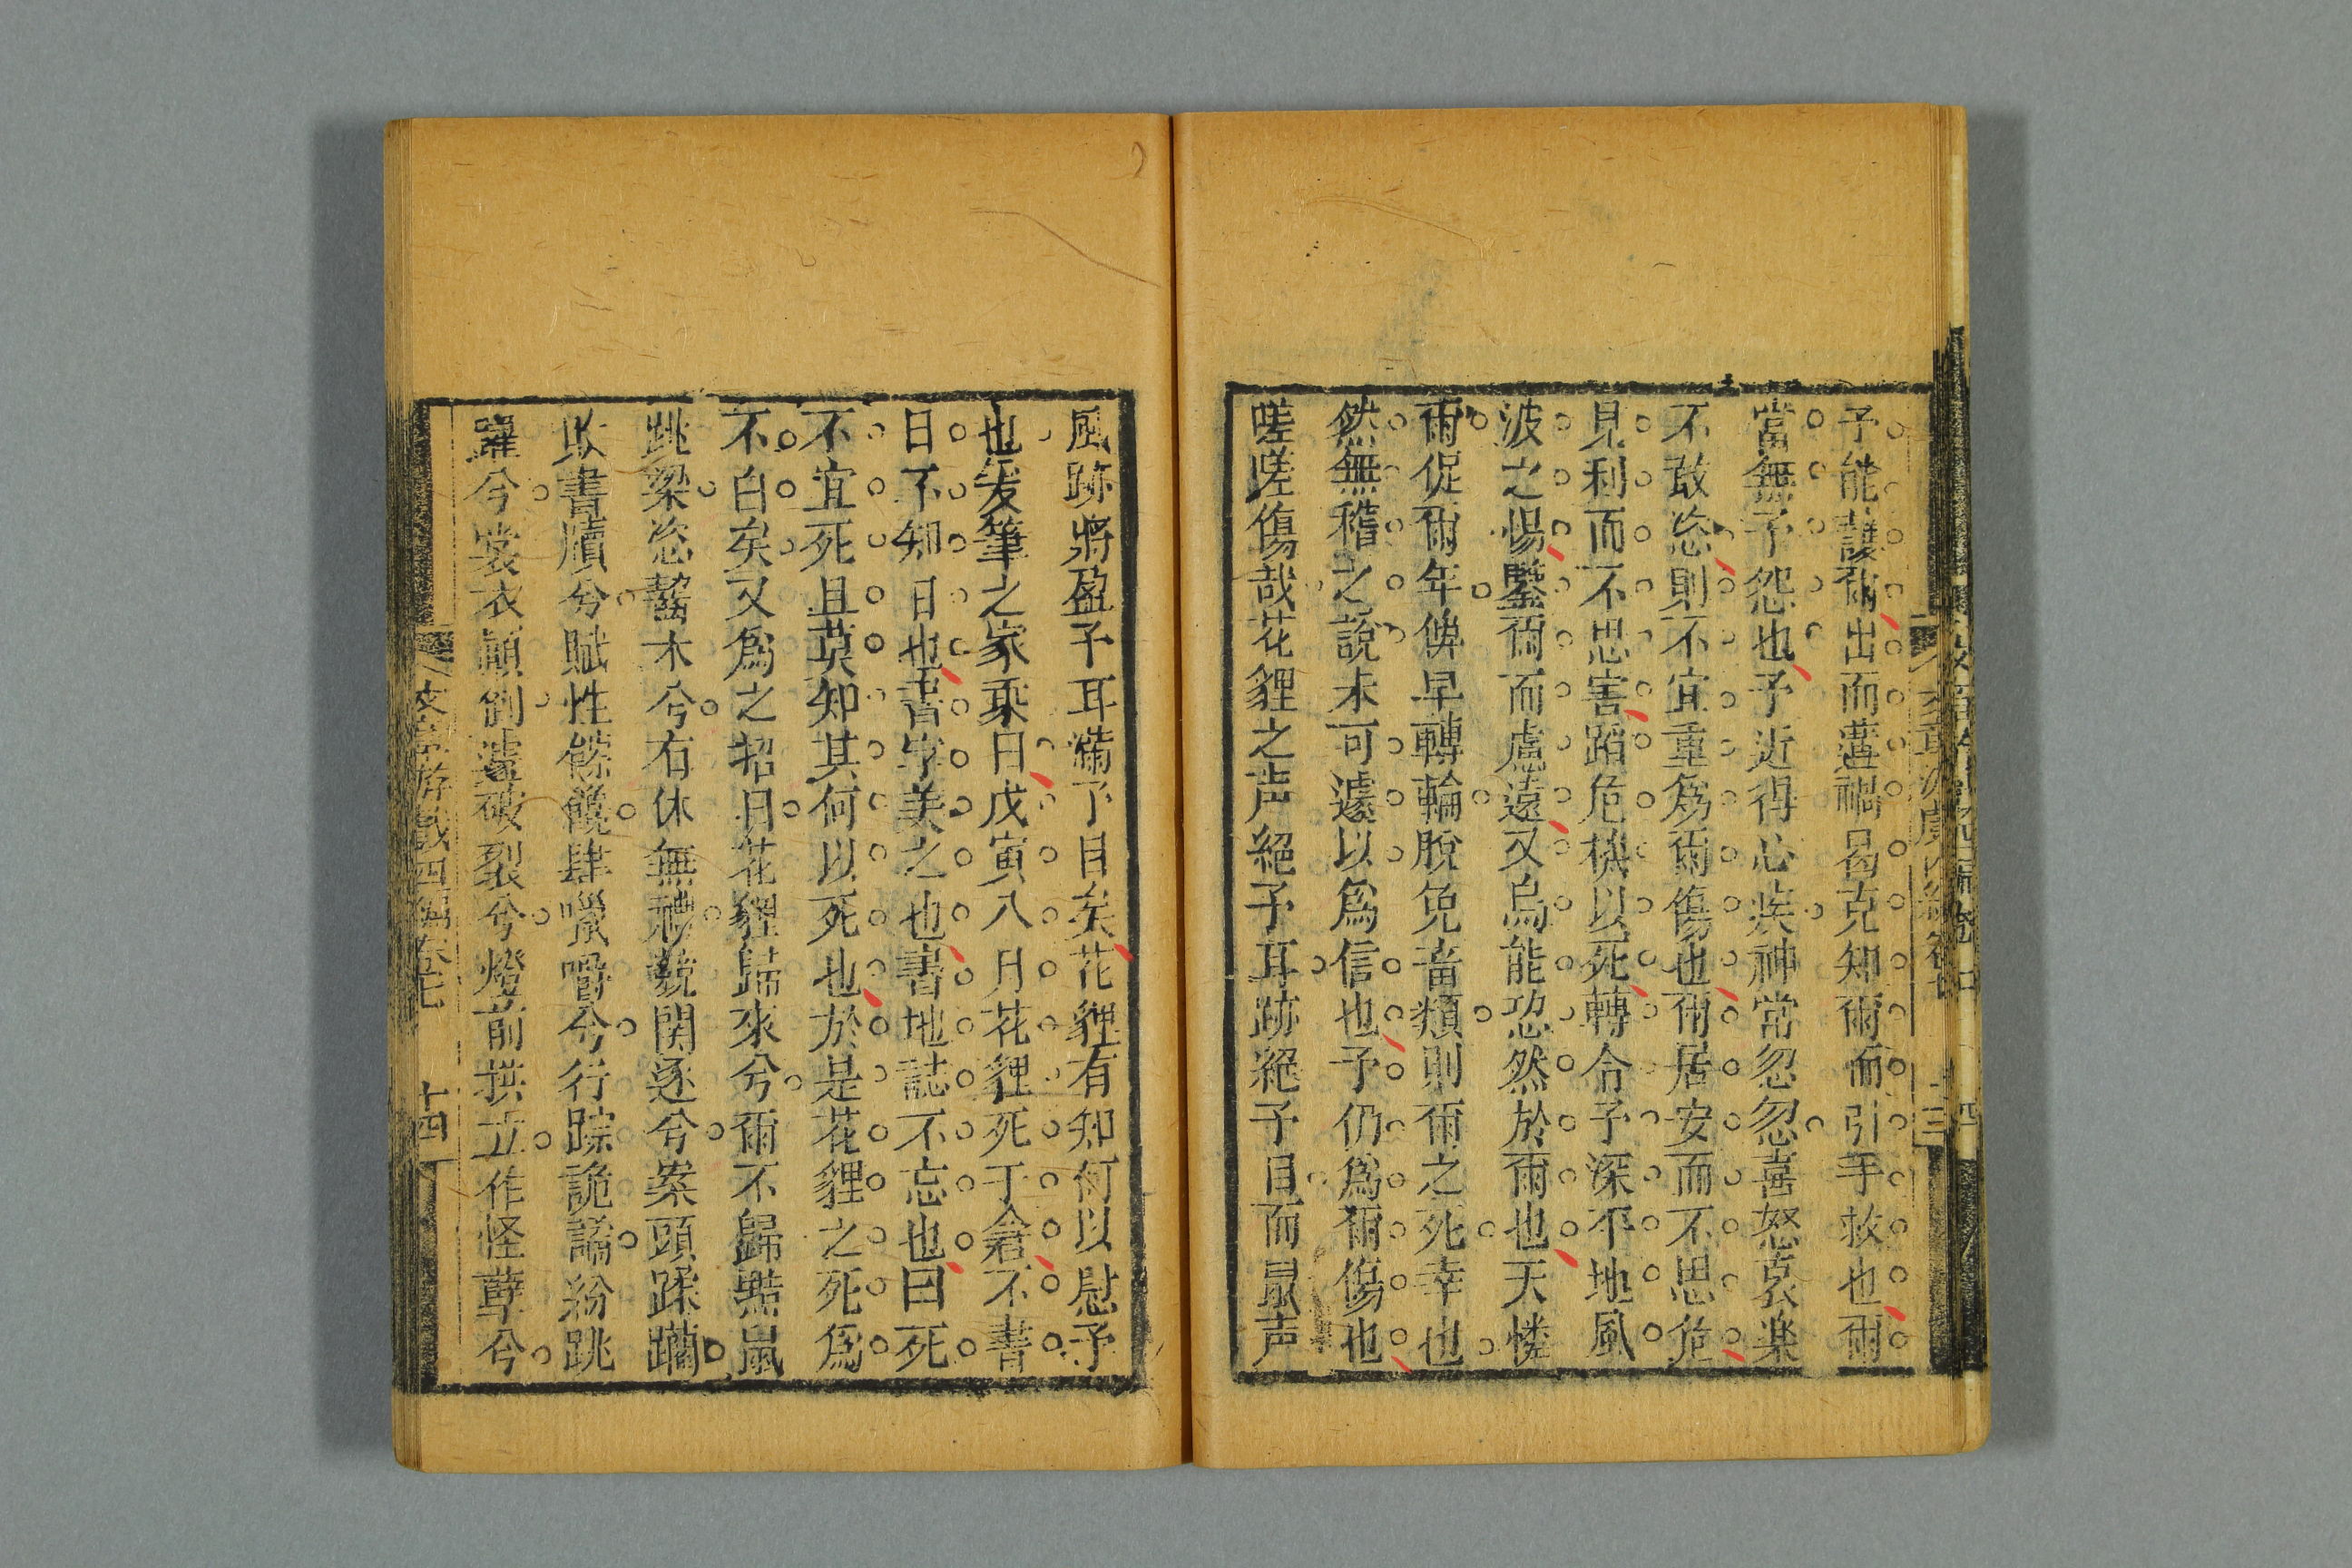 予能護爾出而遘禍曷克知爾而引手救也爾
當無予怨也予近得心疾神常忽忽喜怒哀楽
不敢恣則不宜重為爾傷也爾居安而不思危
見利而不思害蹈危機以死轉令予深不地風
波之惕鑒爾而慮遠又烏能恝然於爾也天憐
爾促爾年俾早轉輪脫免畜類則爾之死幸也
然無稽之說未可遽以為信也予仍為爾傷也
嗟嗟傷哉花貍之声絕予耳跡絕予目而鼠声
鼠跡將盈予耳滿予目矣花貍有知何以慰予
也爰筆之家乘曰戊寅八月花貍死于倉不書
日不知日也書字美之也書地誌不忘也曰死
不宜死且莫知其何以死也於是花貍之死為
不白矣又為之招曰花貍歸來兮爾不歸黠鼠
跳梁恣齧木兮有休無礙競関逐兮案頭蹂躪
敗書牘兮賦性餘饞肆嚼兮行踪詭譎紛跳
躍兮裳衣顛倒遽破裂兮燈前拱立作怪孽兮
文章游戲四編卷七
十四